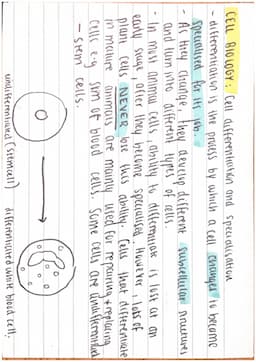 CELL BIOLOGY: Cell differentiation and specialisation
- differentiation is the process by which a cell changes to become
specialised for its job.
- As they change, they develop different subcellular structures
and turn into different types of cells.
- In most animal cells, ability to differentiate is lost at an
early stage, after they become specialised. However, lots of
plant cells NEVER lose this ability. Cells that differentiate
in mature animals are mainly used for repairing & replacing
Cells e.g. skin or blood cells. Some cells are undifferentiated
- stem cells.
undifferentiated (stem cell) differentiated white blood cell.